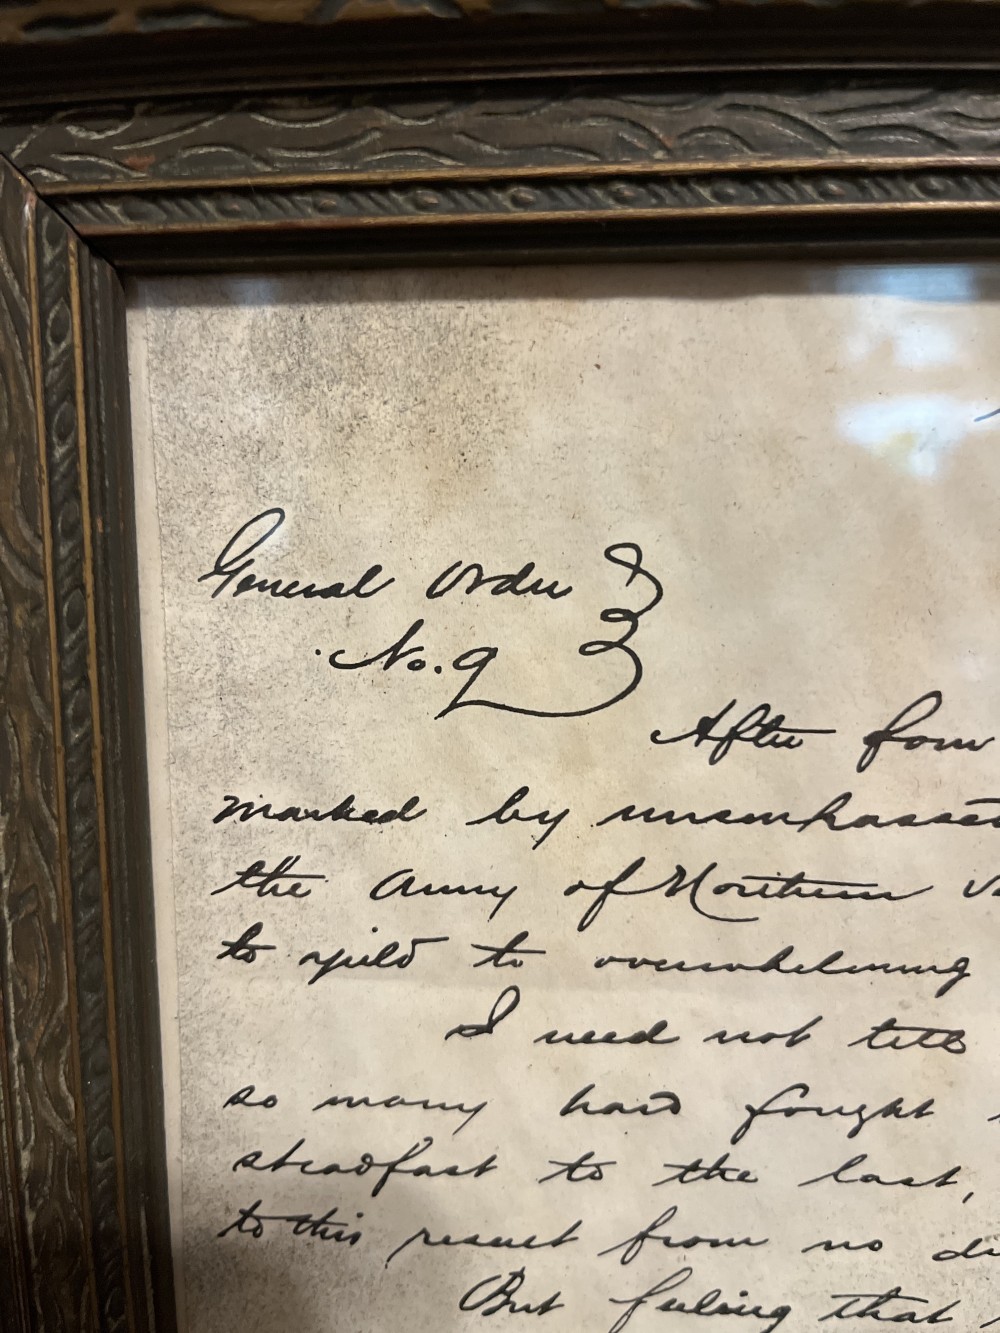 General Order
No. 9
After four
marked by unsurpassed
the Army of Northern
to yield to overwhelming
I need not tell
so many hard fought
steadfast to the last,
to this result from no
But feeling that